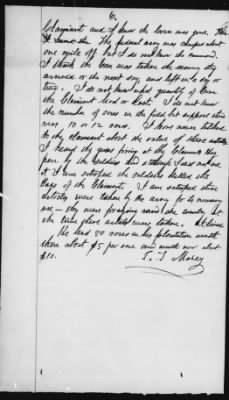 6.
Claimant and I know the corn was gone.
The federal army was camped about
one mile off but I do not know the command.
I think the corn was taken the evening they
arrived or the next day and left in a day or
two. I do not know what quantity of corn
the Claimant lost or had. I do not know
the number of acres in the field but suppose there
was 10 or 12 acres. I have never talked
to the claimant about the value of these articles
I heard the guns firing at the Claimants hog
pen by the soldiers and although I was not
at I am satisfied the soldiers killed the
hogs of the Claimants. I am satisfied these
articles were taken by the army for its necessary
use — they were foraging round the country at
the time these articles were taken.
He had 80 acres in his plantation worth
there about $5 per acre and worth now about
$10.
Maxey